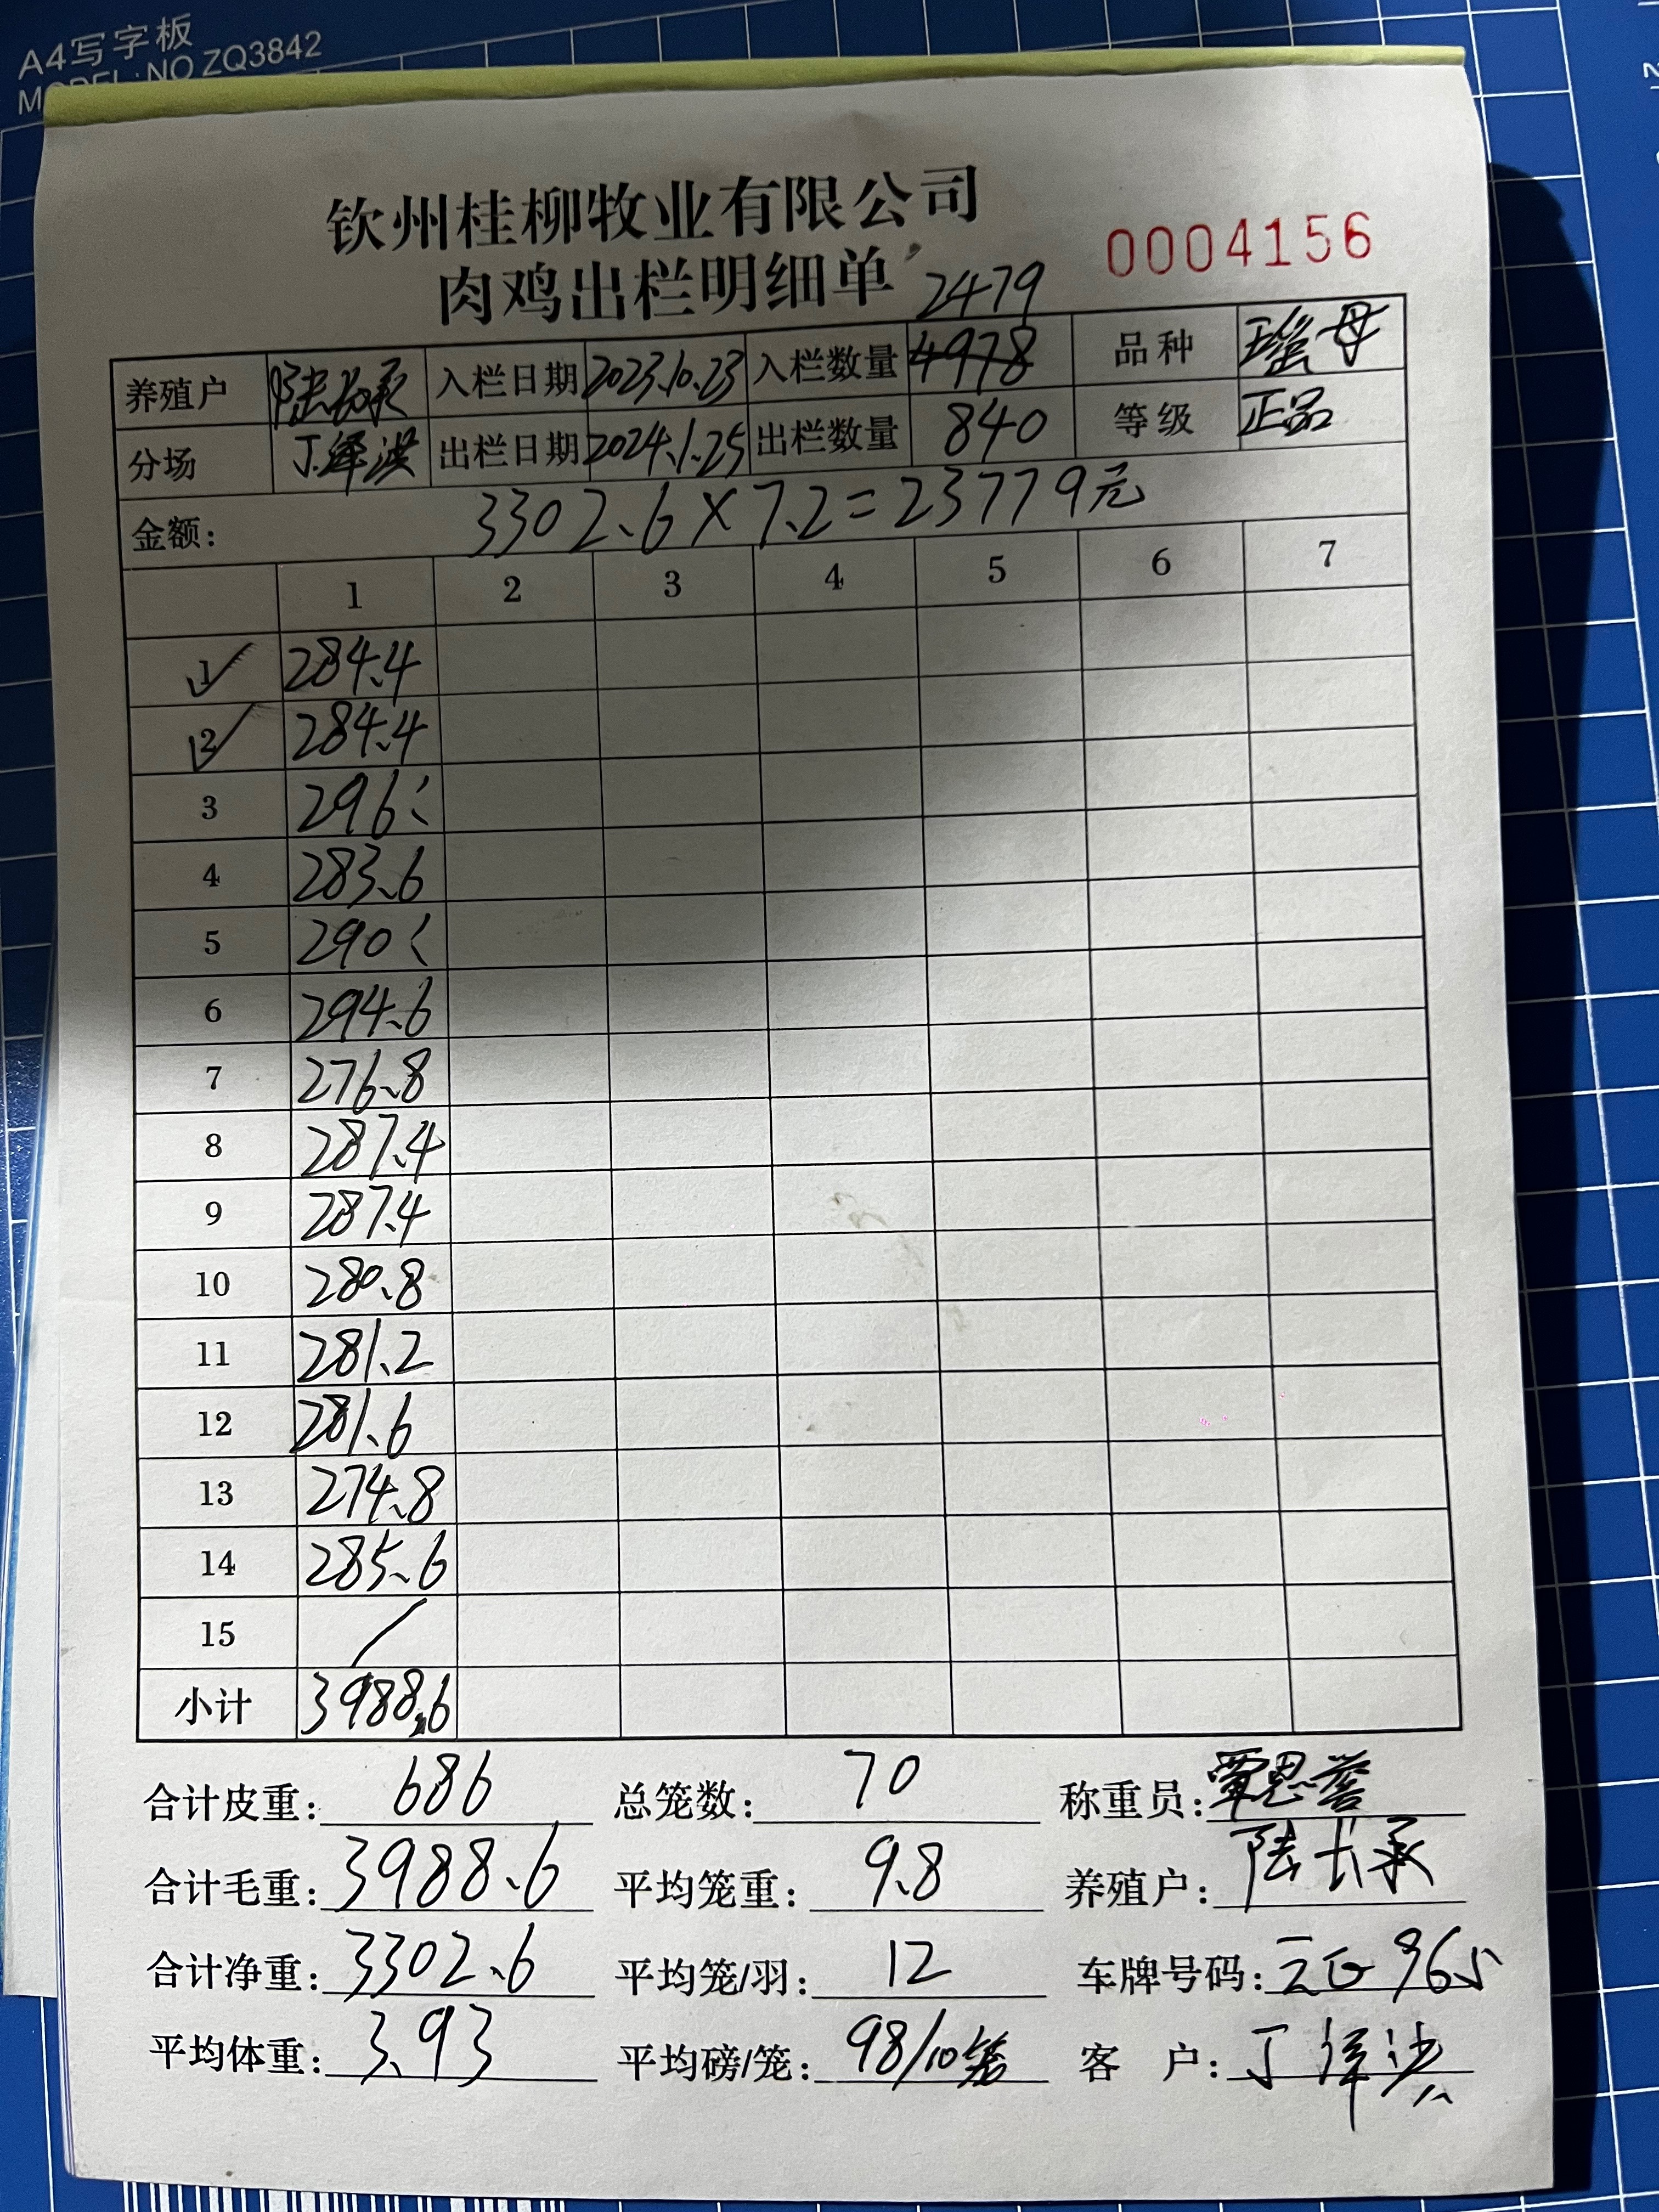 A4写字板
MODEL:NO ZQ3842
钦州桂柳牧业有限公司
肉鸡出栏明细单
0004156
2479
养殖户 陆长承 入栏日期 2023.10.23 入栏数量 4978 品种 瑶母
分场 丁泽洪 出栏日期 2024.1.25 出栏数量 840 等级 正品
金额: 3302.6×7.2=23779元
1 2 3 4 5 6 7
1 284.4
2 284.4
3 296
4 283.6
5 290
6 294.6
7 276.8
8 287.4
9 287.4
10 280.8
11 281.2
12 281.6
13 274.8
14 285.6
15 /
小计 3988.6
合计皮重: 686 总笼数: 70 称重员: 覃恩誉
合计毛重: 3988.6 平均笼重: 9.8 养殖户: 陆长承
合计净重: 3302.6 平均笼/羽: 12 车牌号码: 965
平均体重: 3.93 平均磅/笼: 98/10笼 客 户: 丁泽洪